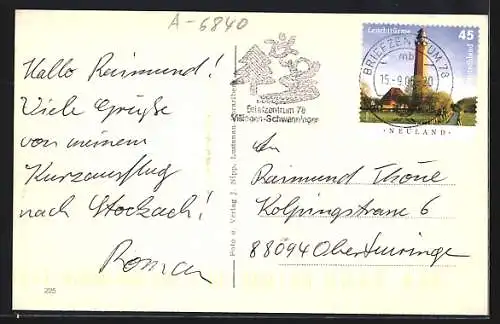 A-6840
Hallo Raimund!
Viele Grüße
von meinem
Kurzausflug
nach Stockach!
Roman
225
Foto u. Verlag J. Nipp, Lustenau
Briefzentrum 78
Villingen-Schwenningen
Leuchttürme
45
Deutschland
NEULAND
BRIEFZENTRUM 78
mb
15.-9.05
20
An
Raimund Thoue
Kolpingstrasse 6
88094 Oberteuringen